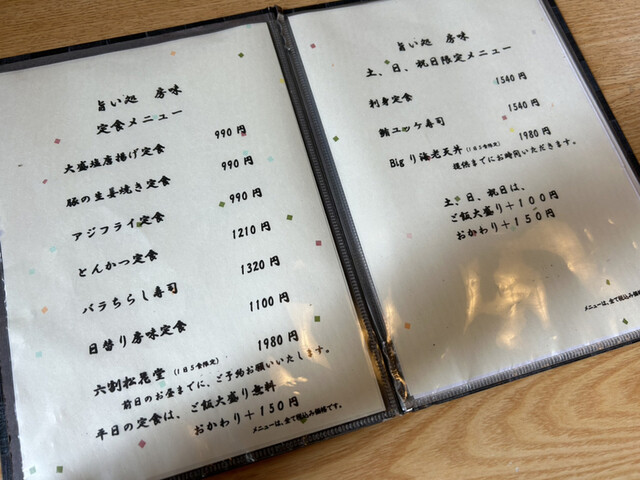 旨い処 房味
定食メニュー
大盛塩唐揚げ定食 990円
豚の生姜焼き定食 990円
アジフライ定食 990円
とんかつ定食 1210円
バラちらし寿司 1320円
日替り房味定食 1100円
六割松花堂(1日5食限定) 1980円
前日のお昼までに、ご予約お願いいたします。
平日の定食は、ご飯大盛り無料
おかわり+150円
メニューは、全て税込み価格です。
旨い処 房味
土、日、祝日限定メニュー
刺身定食 1540円
鮪ユッケ寿司 1540円
Bigり海老天丼(1日5食限定) 1980円
提供までにお時間いただきます。
土、日、祝日は、
ご飯大盛り+100円
おかわり+150円
メニューは、全て税込み価格